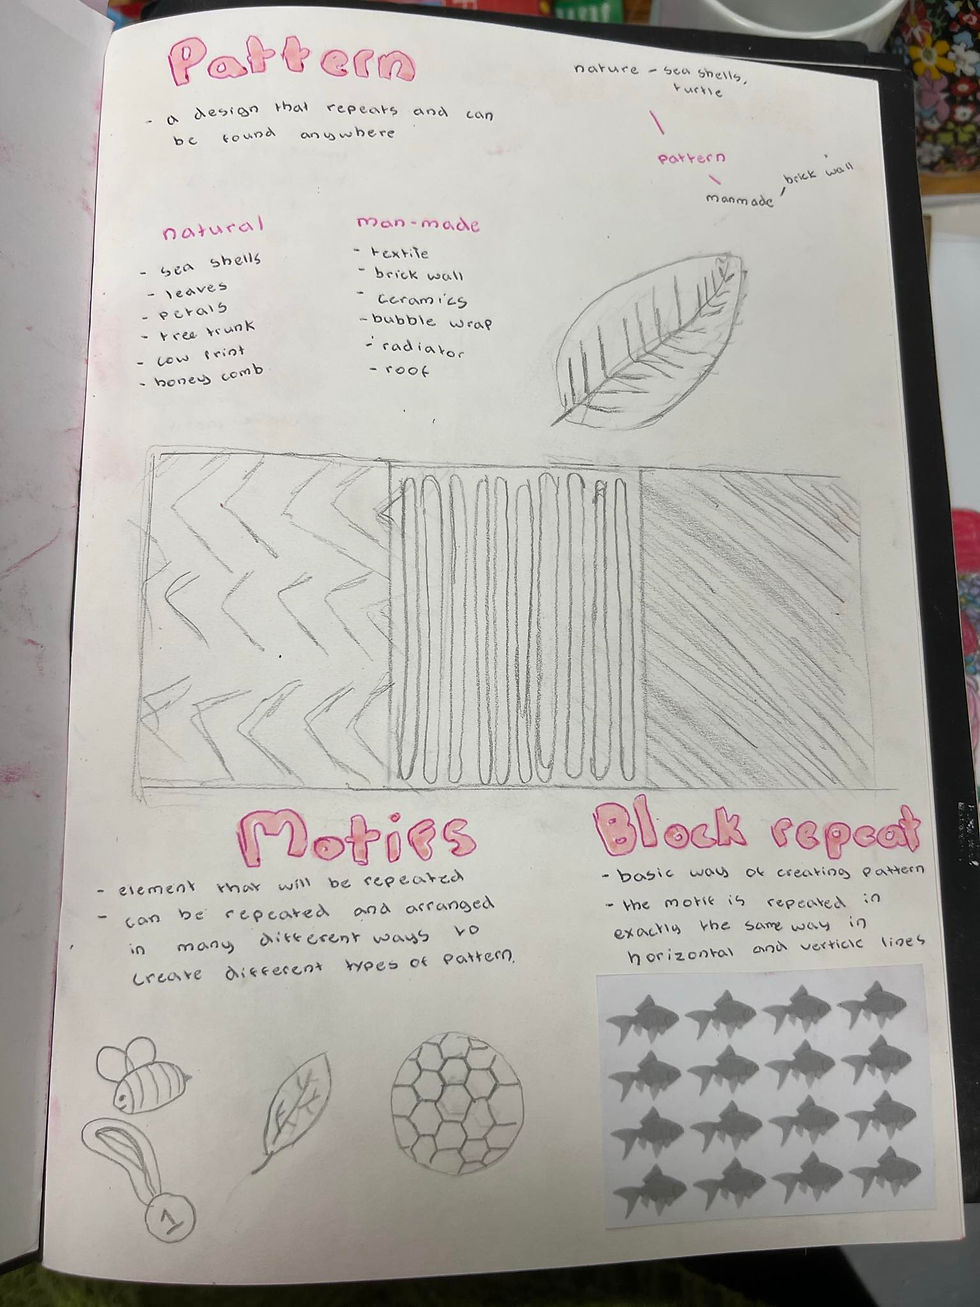 Pattern
- a design that repeats and can
be found anywhere
nature - sea shells,
turtle
pattern
manmade
brick wall
natural
- sea shells
- leaves
- petals
- tree trunk
- cow print
- honey comb
man-made
- textile
- brick wall
- ceramics
- bubble wrap
- radiator
- roof
Motifs
- element that will be repeated
- can be repeated and arranged
in many different ways to
create different types of pattern.
Block repeat
- basic way of creating pattern
- the motif is repeated in
exactly the same way in
horizontal and verticle lines
1